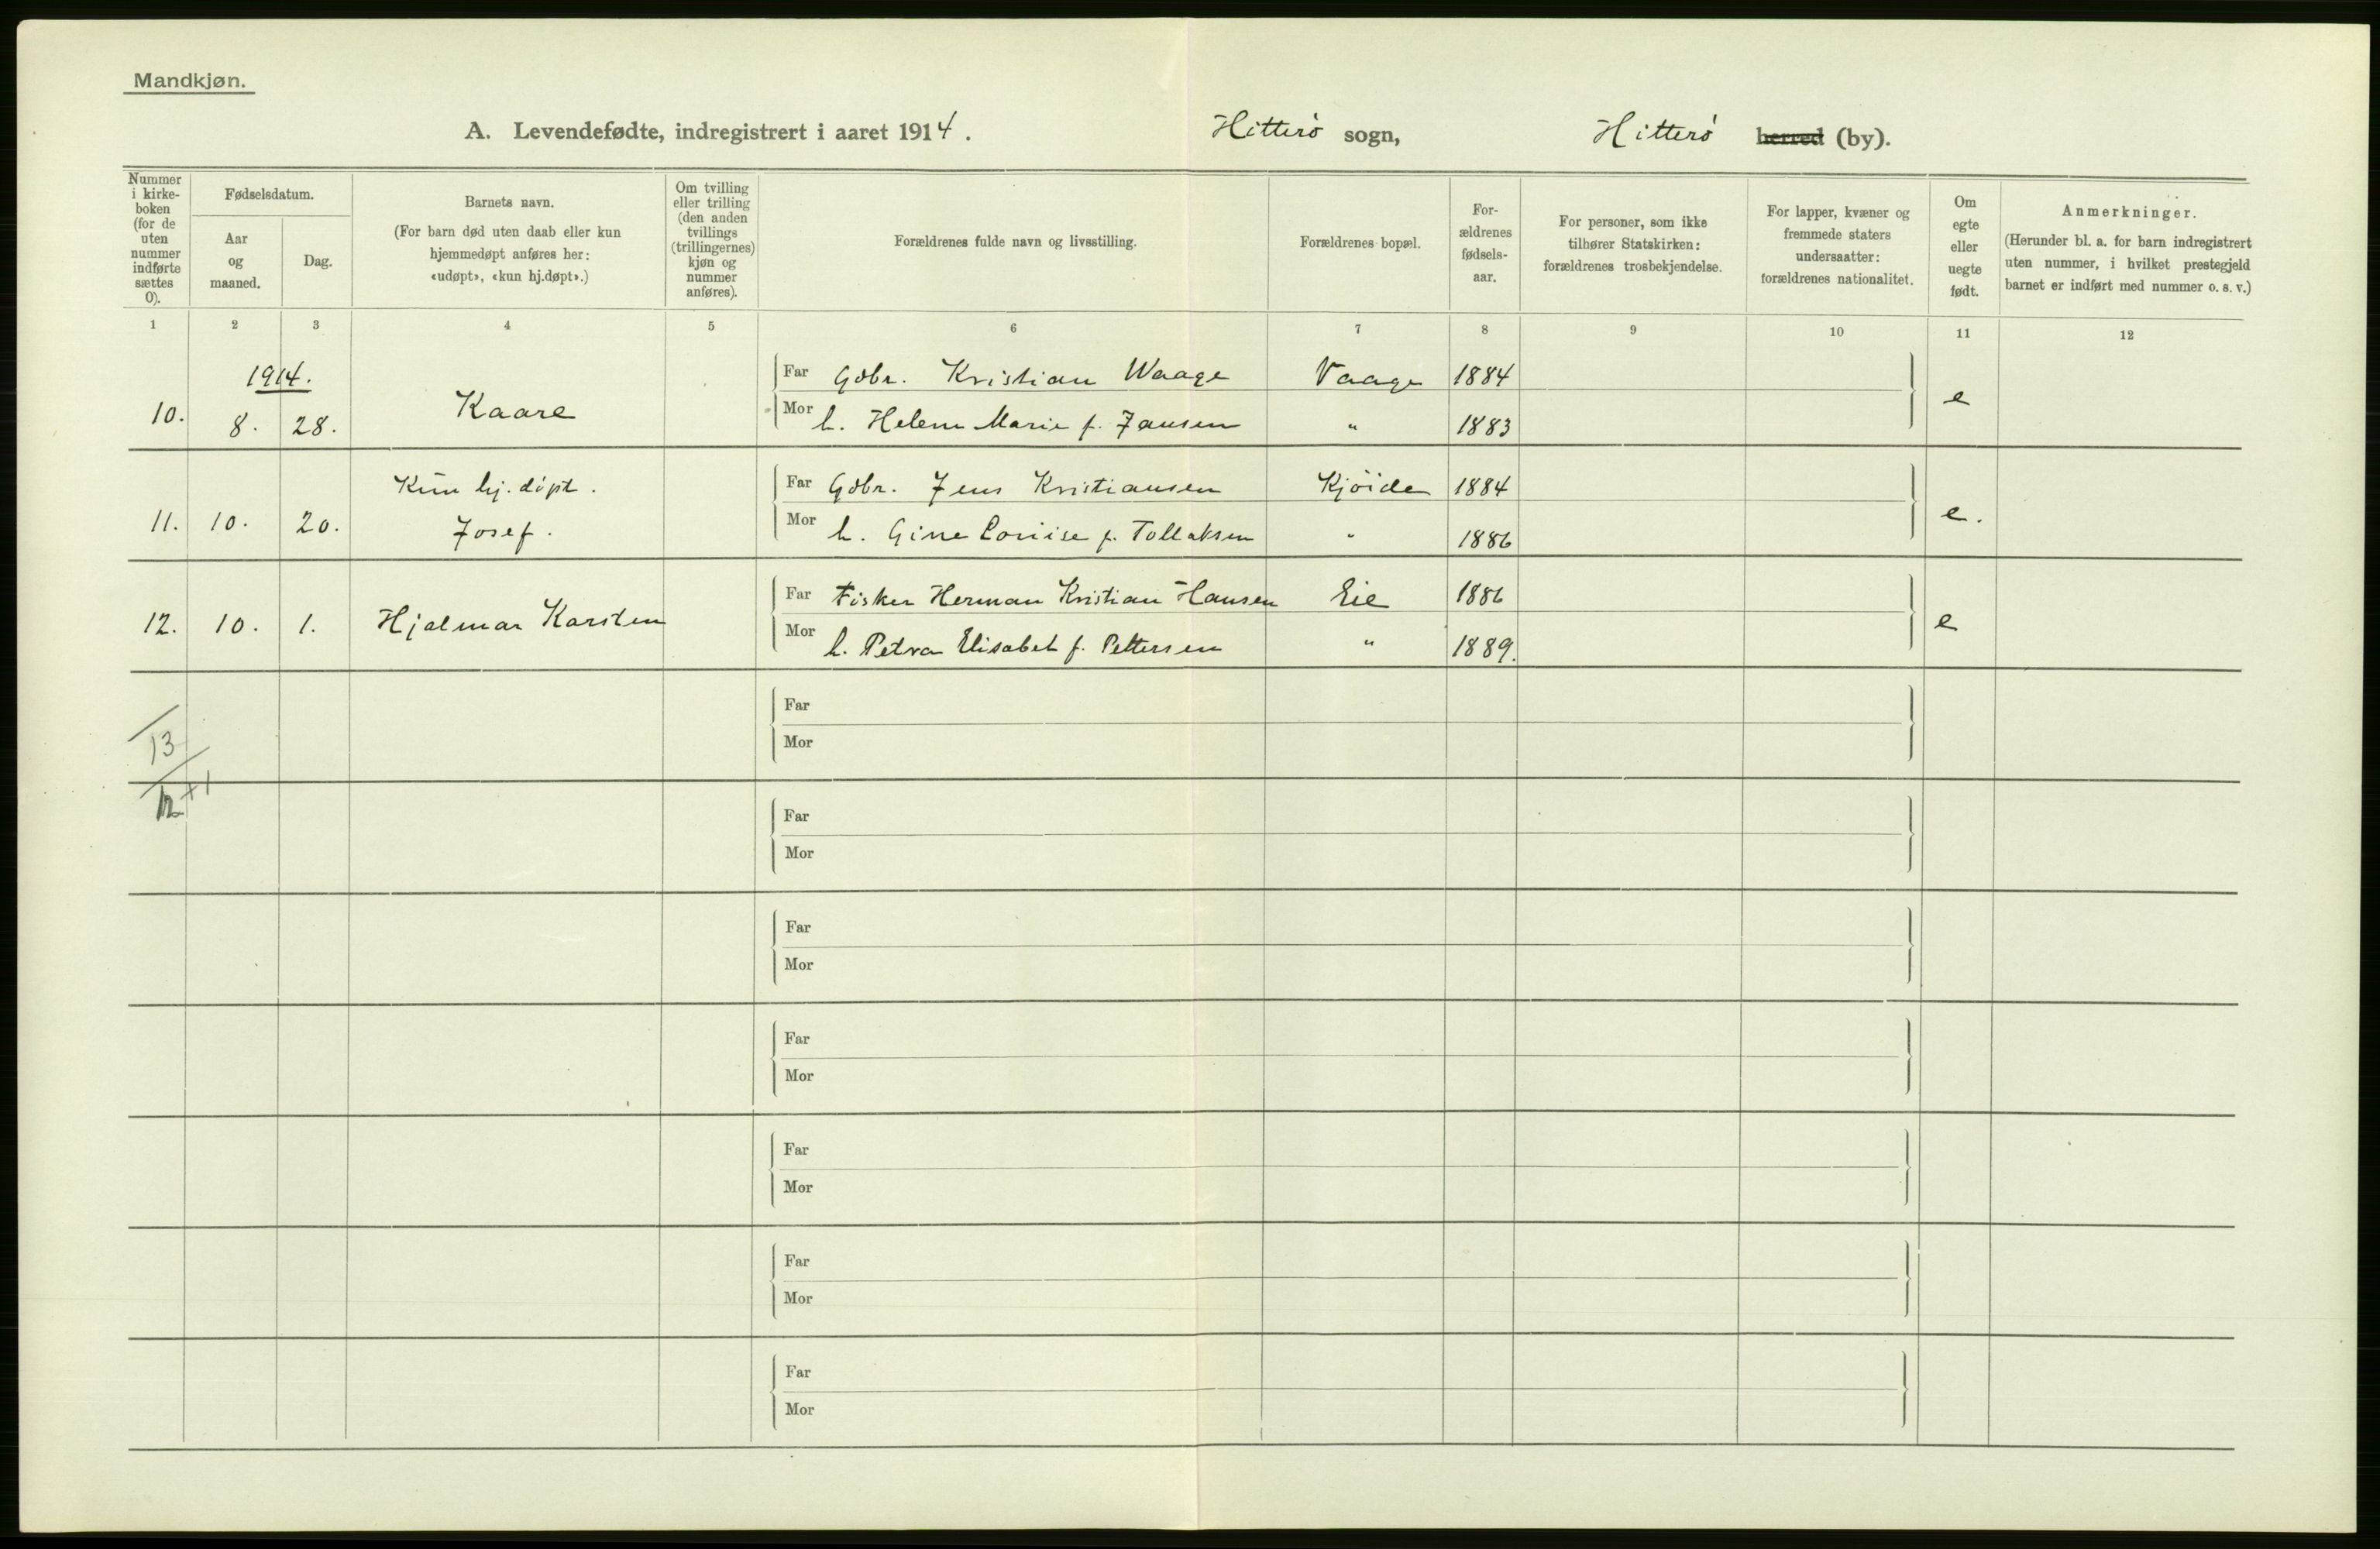 Mandkjøn.
A. Levendefødte, indregistrert i aaret 1914. Hitterö sogn, Hitterö herred (by).
Nummer i kirke- boken (for de uten nummer indførte sættes 0).
Fødselsdatum.
Aar og maaned.
Dag.
Barnets navn.
(For barn død uten daab eller kun
hjemmedøpt anføres her:
«udøpt», «kun hj.døpt».)
Om tvilling
eller trilling
(den anden
tvillings
(trillingernes)
kjøn og
nummer
anføres).
Forældrenes fulde navn og livsstilling.
Forældrenes bopæl.
For-
ældrenes
fødsels-
aar.
For personer, som ikke
tilhører Statskirken:
forældrenes trosbekjendelse.
For lapper, kvæner og
fremmede staters
undersaatter:
forældrenes nationalitet.
Om
egte
eller
uegte
født.
Anmerkninger.
(Herunder bl. a. for barn indregistrert
uten nummer, i hvilket prestegjeld
barnet er indført med nummer o. s. v.)
1 2 3 4 5 6 7 8 9 10 11 12
1914.
Far Gdbr. Kristian Waage Vaage 1884
10. 8. 28. Kaare e
Mor h. Helene Marie f. Jansen " 1883
Kun hj. döpt.
Far Gdbr. Jens Kristiansen Kjöide 1884
11. 10. 20. Josef. e.
Mor h. Gine Louise f. Tollaksen " 1886
Far Fisker Herman Kristian Hansen Eie 1886
12. 10. 1. Hjalmar Karsten e
Mor h. Petra Elisabet f. Pettersen " 1889.
Far
13
Mor
12+1
Far
Mor
Far
Mor
Far
Mor
Far
Mor
Far
Mor
Far
Mor